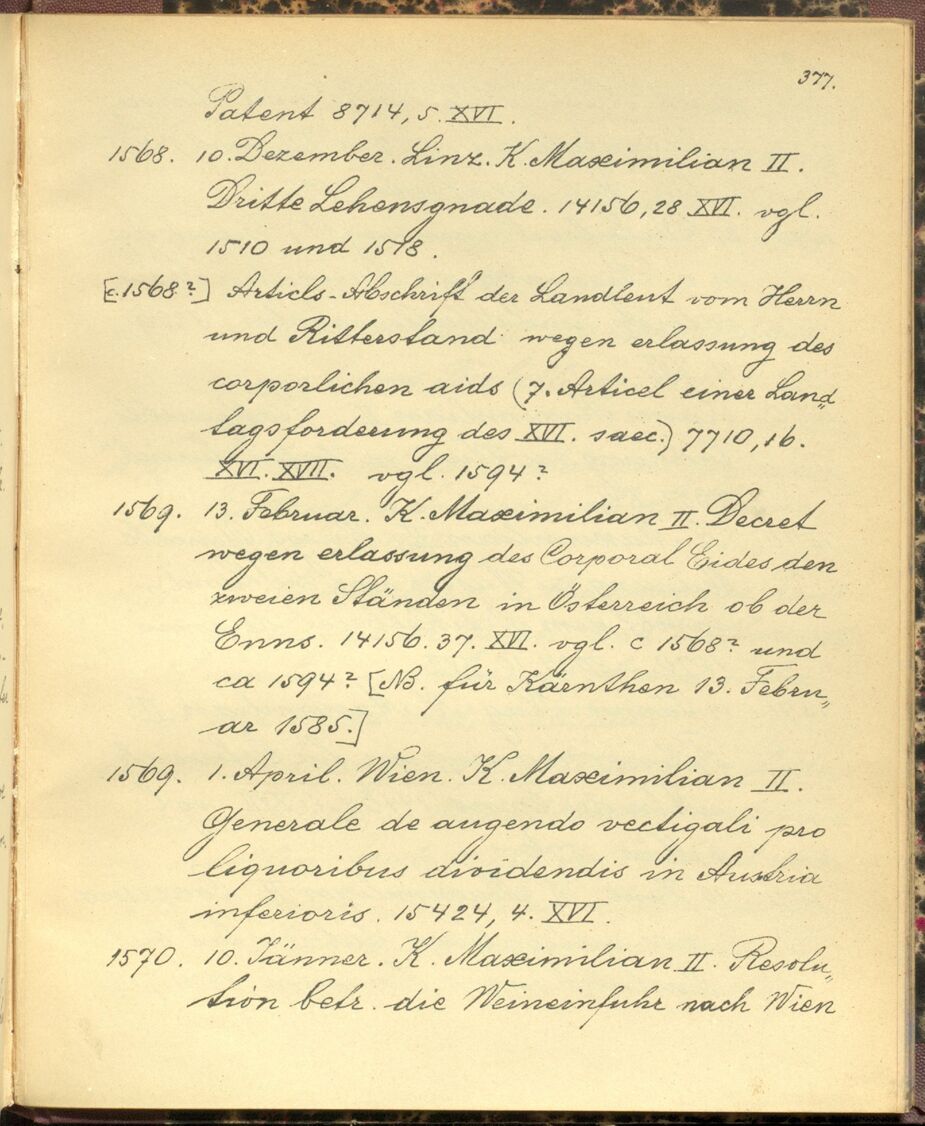 377.
Patent 8714, 5. XVI.
1568. 10. Dezember. Linz. K. Maximilian II.
Dritte Lehensgnade. 14156, 28 XVI. vgl.
1510 und 1518.
[c. 1568?] Articls-Abschrift der Landleut vom Herrn
und Ritterstand wegen erlassung des
corporlichen aids (7. Articel einer Land„
tagsforderung des XVI. saec.) 7710, 16.
XVI. XVII. vgl. 1594?
1569. 13. Februar. K. Maximilian II. Decret
wegen erlassung des Corporal Eides den
zweien Ständen in Österreich ob der
Enns. 14156. 37. XVI. vgl. c 1568? und
ca 1594? [NB. für Kärnthen 13. Febru„
ar 1585.]
1569. 1. April. Wien. K. Maximilian II.
Generale de augendo vectigali pro
liquoribus dividendis in Austria
inferioris. 15424, 4. XVI.
1570. 10. Jänner. K. Maximilian II. Resolu„
tion betr. die Weineinfuhr nach Wien